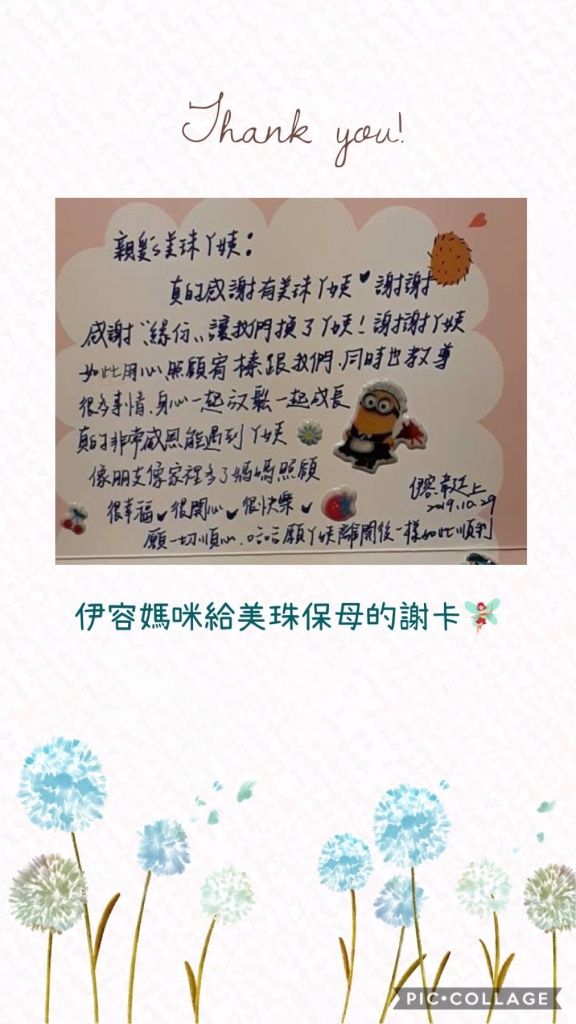 Thank you!
親愛的美珠ㄚ姨：
真的感謝有美珠ㄚ姨♥謝謝
感謝"緣份"讓我們換了ㄚ姨！謝謝ㄚ姨
如此用心照顧宥榛跟我們，同時也教導
很多事情，身心一起放鬆一起成長
真的非常感恩能遇到ㄚ姨
像朋友像家裡多了媽媽照顧
很幸福、很開心、很快樂、
願一切順心，哈哈願ㄚ姨離開後一樣如此順利
伊容 上
2019.10.29
伊容媽咪給美珠保母的謝卡🧚
PIC•COLLAGE